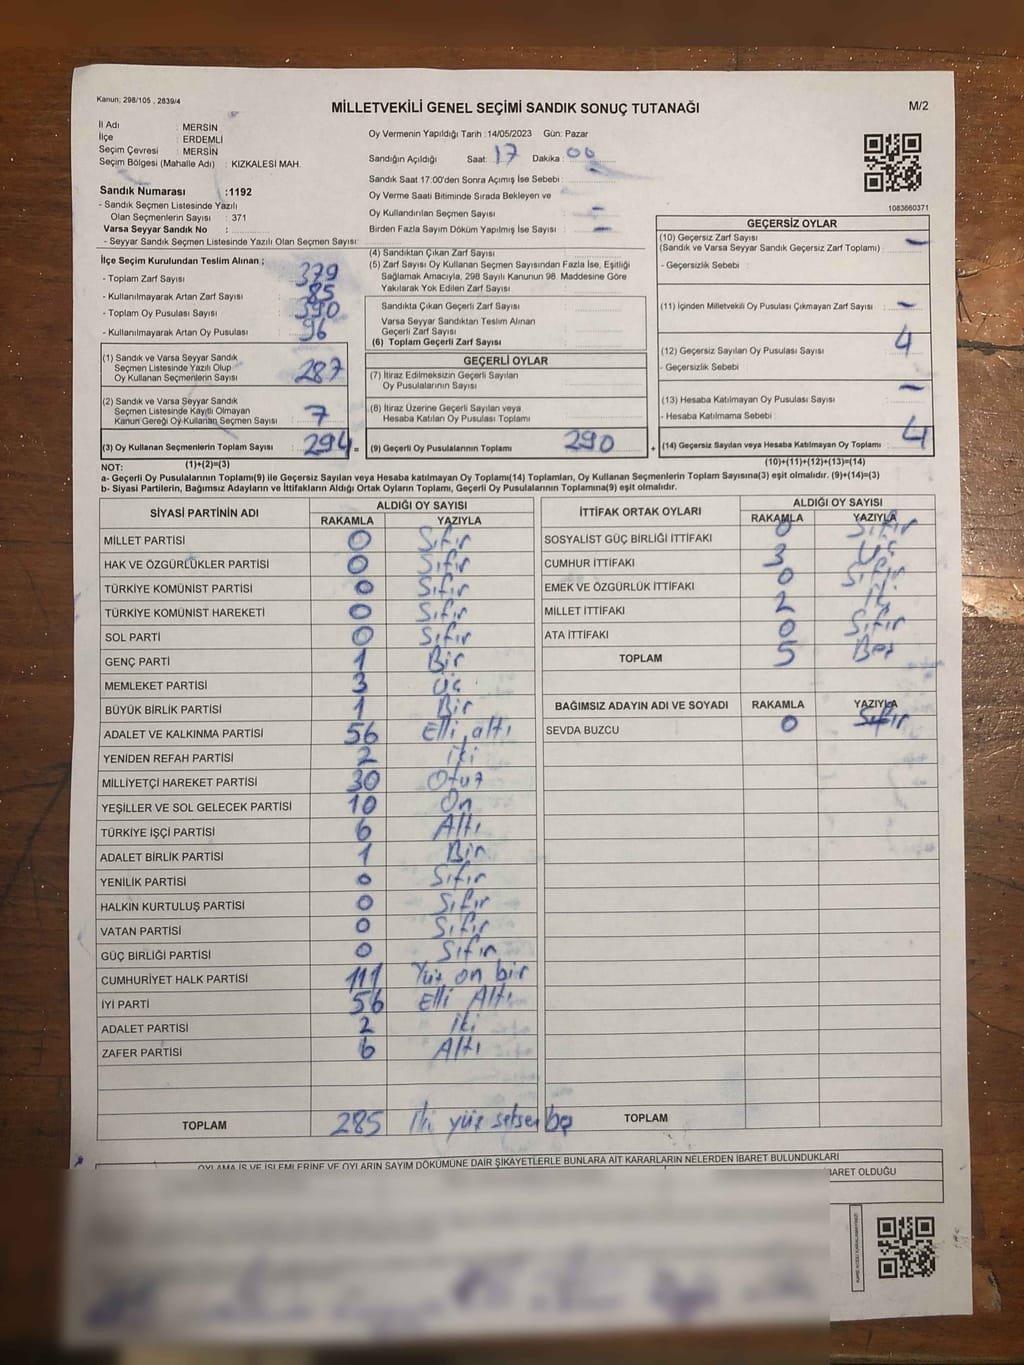 Kanun; 298/105 , 2839/4
MİLLETVEKİLİ GENEL SEÇİMİ SANDIK SONUÇ TUTANAĞI
M/2
İl Adı : MERSİN
İlçe : ERDEMLİ
Seçim Çevresi : MERSİN
Seçim Bölgesi (Mahalle Adı) : KIZKALESİ MAH.
Oy Vermenin Yapıldığı Tarih :14/05/2023 Gün: Pazar
Sandığın Açıldığı Saat: 17 Dakika : 00
Sandık Saat 17:00'den Sonra Açımış İse Sebebi :
Oy Verme Saati Bitiminde Sırada Bekleyen ve
Oy Kullandırılan Seçmen Sayısı : -
Birden Fazla Sayım Döküm Yapılmış İse Sayısı : -
1083660371
Sandık Numarası :1192
- Sandık Seçmen Listesinde Yazılı
Olan Seçmenlerin Sayısı : 371
Varsa Seyyar Sandık No :
- Seyyar Sandık Seçmen Listesinde Yazılı Olan Seçmen Sayısı:
İlçe Seçim Kurulundan Teslim Alınan ;
- Toplam Zarf Sayısı : 379
- Kullanılmayarak Artan Zarf Sayısı : 85
- Toplam Oy Pusulası Sayısı : 390
- Kullanılmayarak Artan Oy Pusulası : 96
(1) Sandık ve Varsa Seyyar Sandık
Seçmen Listesinde Yazılı Olup
Oy Kullanan Seçmenlerin Sayısı : 287
(2) Sandık ve Varsa Seyyar Sandık
Seçmen Listesinde Kayıtlı Olmayan
Kanun Gereği Oy Kullanan Seçmen Sayısı : 7
(3) Oy Kullanan Seçmenlerin Toplam Sayısı : 294 =
(4) Sandıktan Çıkan Zarf Sayısı :
(5) Zarf Sayısı Oy Kullanan Seçmen Sayısından Fazla İse, Eşitliği
Sağlamak Amacıyla, 298 Sayılı Kanunun 98. Maddesine Göre
Yakılarak Yok Edilen Zarf Sayısı :
Sandıkta Çıkan Geçerli Zarf Sayısı :
Varsa Seyyar Sandıktan Teslim Alınan
Geçerli Zarf Sayısı :
(6) Toplam Geçerli Zarf Sayısı :
GEÇERLİ OYLAR
(7) İtiraz Edilmeksizin Geçerli Sayılan
Oy Pusulalarının Sayısı :
(8) İtiraz Üzerine Geçerli Sayılan veya
Hesaba Katılan Oy Pusulası Toplamı :
(9) Geçerli Oy Pusulalarının Toplamı : 290 +
GEÇERSİZ OYLAR
(10) Geçersiz Zarf Sayısı : -
(Sandık ve Varsa Seyyar Sandık Geçersiz Zarf Toplamı)
- Geçersizlik Sebebi :
(11) İçinden Milletvekili Oy Pusulası Çıkmayan Zarf Sayısı : -
(12) Geçersiz Sayılan Oy Pusulası Sayısı : 4
- Geçersizlik Sebebi :
(13) Hesaba Katılmayan Oy Pusulası Sayısı : -
- Hesaba Katılmama Sebebi :
(14) Geçersiz Sayılan veya Hesaba Katılmayan Oy Toplamı : 4
NOT: (1)+(2)=(3)
(10)+(11)+(12)+(13)=(14)
a- Geçerli Oy Pusulalarının Toplamı(9) ile Geçersiz Sayılan veya Hesaba katılmayan Oy Toplamı(14) Toplamları, Oy Kullanan Seçmenlerin Toplam Sayısına(3) eşit olmalıdır. (9)+(14)=(3)
b- Siyasi Partilerin, Bağımsız Adayların ve İttifakların Aldığı Ortak Oyların Toplamı, Geçerli Oy Pusulalarının Toplamına(9) eşit olmalıdır.
SİYASİ PARTİNİN ADI ALDIĞI OY SAYISI
RAKAMLA YAZIYLA
MİLLET PARTİSİ 0 Sıfır
HAK VE ÖZGÜRLÜKLER PARTİSİ 0 Sıfır
TÜRKİYE KOMÜNİST PARTİSİ 0 Sıfır
TÜRKİYE KOMÜNİST HAREKETİ 0 Sıfır
SOL PARTİ 0 Sıfır
GENÇ PARTİ 1 Bir
MEMLEKET PARTİSİ 3 Üç
BÜYÜK BİRLİK PARTİSİ 1 Bir
ADALET VE KALKINMA PARTİSİ 56 Elli altı
YENİDEN REFAH PARTİSİ 2 iki
MİLLİYETÇİ HAREKET PARTİSİ 30 Otuz
YEŞİLLER VE SOL GELECEK PARTİSİ 10 On
TÜRKİYE İŞÇİ PARTİSİ 6 Altı
ADALET BİRLİK PARTİSİ 1 Bir
YENİLİK PARTİSİ 0 Sıfır
HALKIN KURTULUŞ PARTİSİ 0 Sıfır
VATAN PARTİSİ 0 Sıfır
GÜÇ BİRLİĞİ PARTİSİ 0 Sıfır
CUMHURİYET HALK PARTİSİ 111 Yüz on bir
İYİ PARTİ 56 Elli Altı
ADALET PARTİSİ 2 iki
ZAFER PARTİSİ 6 Altı
TOPLAM 285 İki yüz seksen beş
İTTİFAK ORTAK OYLARI ALDIĞI OY SAYISI
RAKAMLA YAZIYLA
SOSYALİST GÜÇ BİRLİĞİ İTTİFAKI 0 Sıfır
CUMHUR İTTİFAKI 3 Üç
EMEK VE ÖZGÜRLÜK İTTİFAKI 0 Sıfır
MİLLET İTTİFAKI 2 iki
ATA İTTİFAKI 0 Sıfır
TOPLAM 5 Beş
BAĞIMSIZ ADAYIN ADI VE SOYADI RAKAMLA YAZIYLA
SEVDA BUZCU 0 Sıfır
TOPLAM
OYLAMA İŞ VE İŞLEMLERİNE VE OYLARIN SAYIM DÖKÜMÜNE DAİR ŞİKAYETLERLE BUNLARA AİT KARARLARIN NELERDEN İBARET BULUNDUKLARI
İBARET OLDUĞU